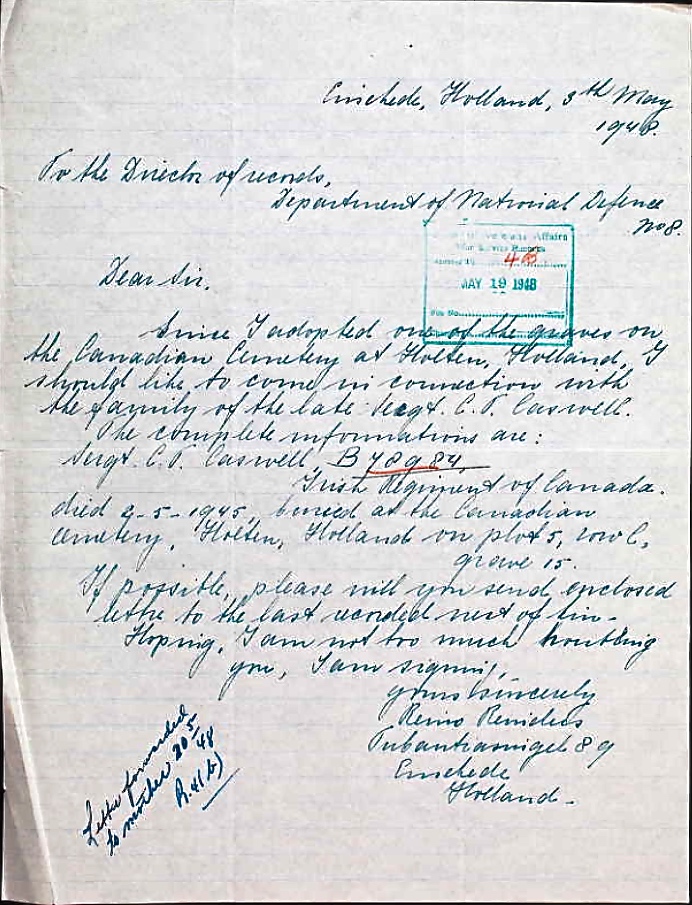 Enschede, Holland, 3th May
1948.
To the Director of records,
Department of National Defence
no 8.
Affairs
War Service Records
48
MAY 19 1948
File No.
Dear Sir.
Since I adopted one of the graves on
the Canadian Cemetery at Holten, Holland, I
should like to come in connection with
the family of the late Sergt. C. T. Caswell.
The complete informations are:
Sergt. C. T. Caswell, B 78984,
Irish Regiment of Canada.
died 2-5-1945, buried at the Canadian
cemetery, Holten, Holland on plot 5, row C,
grave 15.
If possible, please will you send enclosed
letter to the last recorded next of kin-
Hoping, I am not too much troubling
you, I am signing,
yours sincerely
Reino
Tubantiasingel 89
Enschede
Holland-
Letter forwarded
to mother 20/5/48
R.41(b)